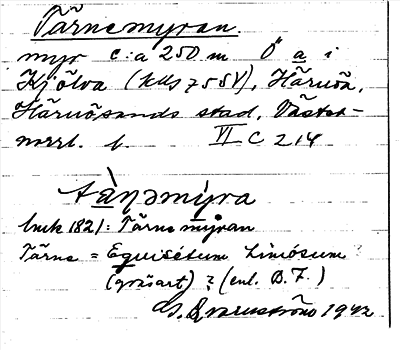 Tärnemyran.
myr c:a 250 m Ö a i
Kjölva (KUs 755V), Härnön,
Härnösands stad, Väster-
norrl. l. VI C 214
tä̀ṇəmýra
lmk 1821: Tärnemyran
Tärne = Equisétum Limósum
(gräsart) ? (enl. B.F.)
G. Qvarnström 1942